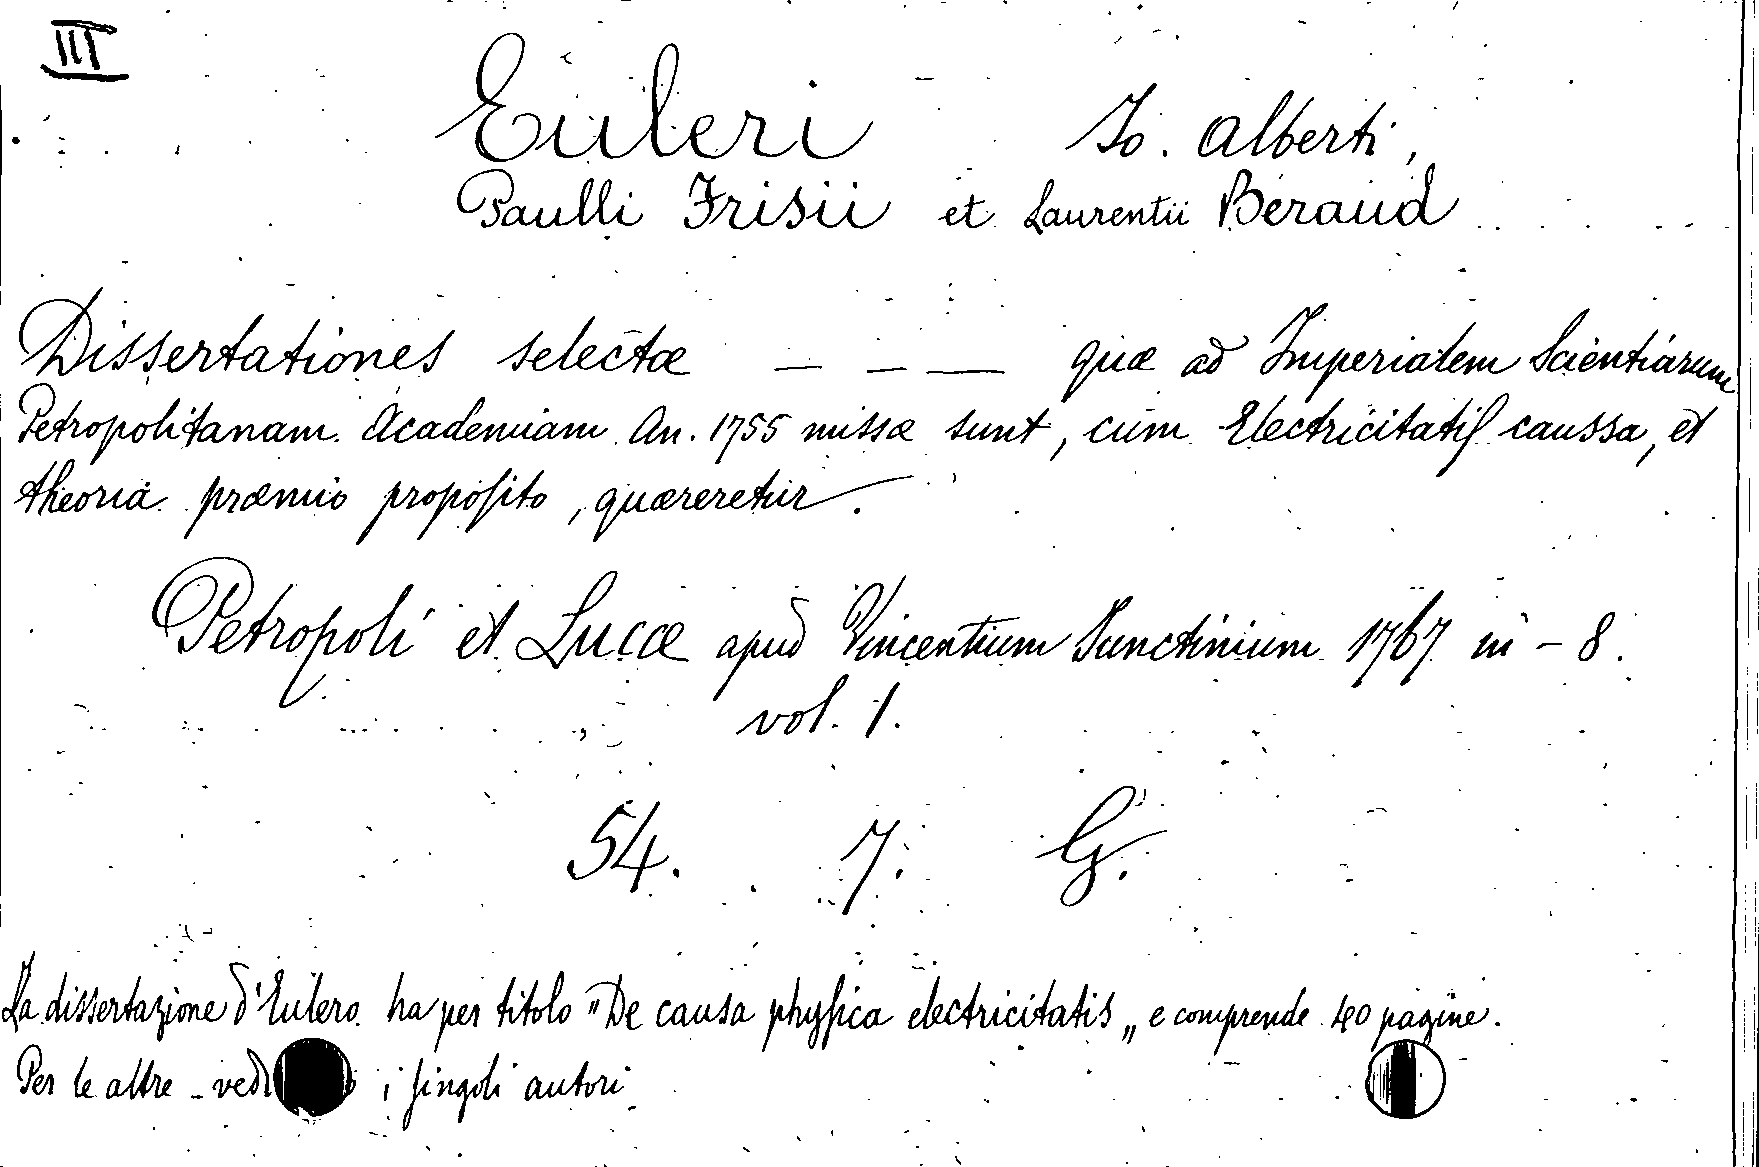 III
Euleri Jo. Alberti,
Paulli Frisii et Laurentii Beraud
Dissertationes selectæ — — — quæ ad Imperialem Scientiarum
Petropolitanam Academiam An. 1755 missæ sunt, cum Electricitatis caussa, et
theoria præmio proposito, quæreretur.
Petropoli et Lucæ apud Vincentium Junctinium 1767 in - 8.
vol. 1.
54. 7. G.
La dissertazione d'Eulero ha per titolo "De causa physica electricitatis„ e comprende 40 pagine.
Per le altre - i singoli autori